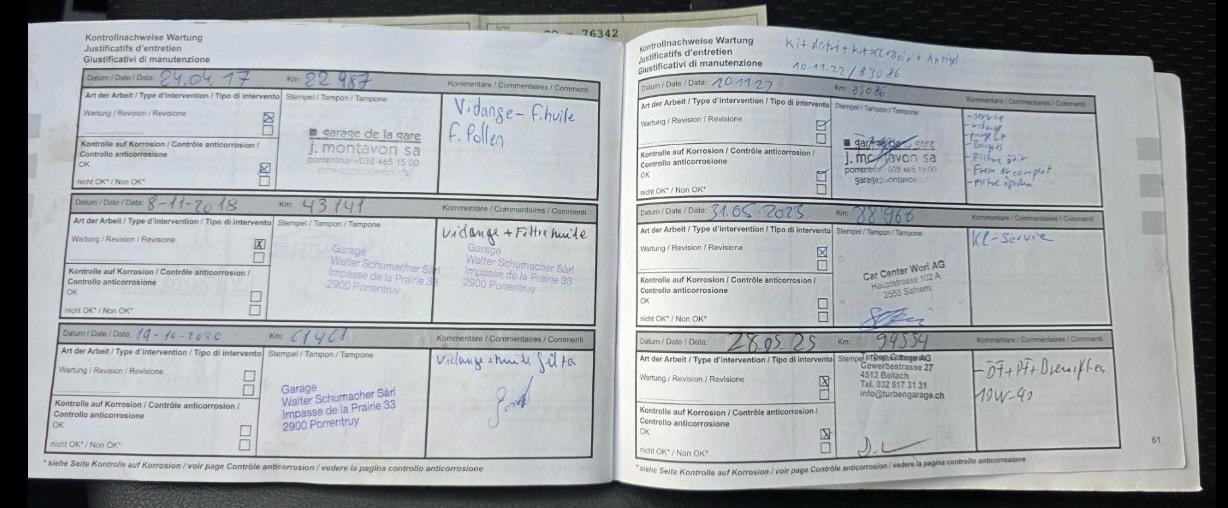 76342
Kontrollnachweise Wartung
Justificatifs d'entretien
Giustificativi di manutenzione
Datum / Date / Data: 24.04.17 Km: 22 987 Kommentare / Commentaires / Commenti
Art der Arbeit / Type d'intervention / Tipo di intervento Stempel / Tampon / Tampone
Wartung / Revision / Revisione
Vidange - F. huile
F. Pollen
Kontrolle auf Korrosion / Contrôle anticorrosion /
Controllo anticorrosione
OK
nicht OK* / Non OK*
garage de la gare
j. montavon sa
porrentruy - 032 465 15 00
Datum / Date / Data: 8-11-2018 Km: 43141 Kommentare / Commentaires / Commenti
Art der Arbeit / Type d'intervention / Tipo di intervento Stempel / Tampon / Tampone
Wartung / Revision / Revisione
Vidange + Filtre huile
Kontrolle auf Korrosion / Contrôle anticorrosion /
Controllo anticorrosione
OK
nicht OK* / Non OK*
Garage
Walter Schumacher Sàrl
Impasse de la Prairie 33
2900 Porrentruy
Garage
Walter Schumacher Sàrl
Impasse de la Prairie 33
2900 Porrentruy
Datum / Date / Data: 19-10-2020 Km: 61461 Kommentare / Commentaires / Commenti
Art der Arbeit / Type d'intervention / Tipo di intervento Stempel / Tampon / Tampone
Wartung / Revision / Revisione
Vidange huile
Kontrolle auf Korrosion / Contrôle anticorrosion /
Controllo anticorrosione
OK
nicht OK* / Non OK*
Garage
Walter Schumacher Sàrl
Impasse de la Prairie 33
2900 Porrentruy
* siehe Seite Kontrolle auf Korrosion / voir page Contrôle anticorrosion / vedere la pagina controllo anticorrosione
Kontrollnachweise Wartung
Justificatifs d'entretien
Giustificativi di manutenzione
Kit distri + kit
10.11.22 / 83086
Datum / Date / Data: 10.11.22 Km: 83086 Kommentare / Commentaires / Commenti
Art der Arbeit / Type d'intervention / Tipo di intervento Stempel / Tampon / Tampone
Wartung / Revision / Revisione
- service
- vidange
- Bougies
- Filtre
- Frein complet
- filtre
Kontrolle auf Korrosion / Contrôle anticorrosion /
Controllo anticorrosione
OK
nicht OK* / Non OK*
garage de la gare
j. montavon sa
porrentruy - 032 465 15 00
Datum / Date / Data: 31.05.2023 Km: 88'966 Kommentare / Commentaires / Commenti
Art der Arbeit / Type d'intervention / Tipo di intervento Stempel / Tampon / Tampone
Wartung / Revision / Revisione
Kl-Service
Kontrolle auf Korrosion / Contrôle anticorrosion /
Controllo anticorrosione
OK
nicht OK* / Non OK*
Car Center Wori AG
Hauptstrasse 102 A
2553 Safnern
Datum / Date / Data: 28.05.25 Km: 94554 Kommentare / Commentaires / Commenti
Art der Arbeit / Type d'intervention / Tipo di intervento Stempel / Tampon / Tampone
Wartung / Revision / Revisione
Garage AG
Gewerbestrasse 27
4512 Bellach
Tel. 032 617 31 31
info@turbengarage.ch
- ÖF + PF +
10W-40
Kontrolle auf Korrosion / Contrôle anticorrosion /
Controllo anticorrosione
OK
nicht OK* / Non OK*
* siehe Seite Kontrolle auf Korrosion / voir page Contrôle anticorrosion / vedere la pagina controllo anticorrosione
61